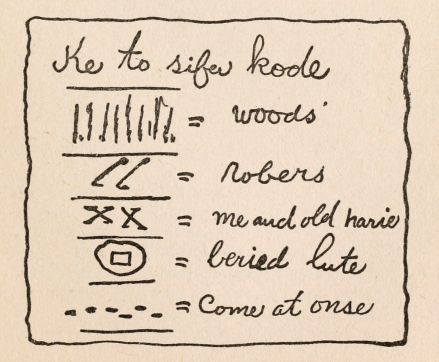 Ke to sifer kode
= woods'
= robers
XX = me and old harie
= beried lute
= Come at onse